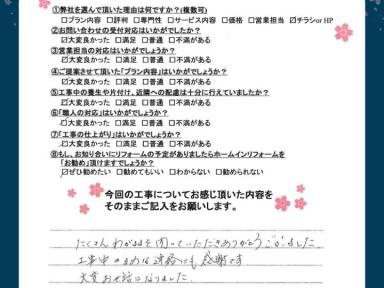 ①弊社を選んで頂いた理由は何ですか?(複数可)
□プラン内容 □評判 □専門性 □サービス内容 □価格 □営業担当 ☑チラシor HP
②お問い合わせの受付対応はいかがでしたか?
☑大変良かった □満足 □普通 □不満がある
③営業担当の対応はいかがでしょうか?
☑大変良かった □満足 □普通 □不満がある
④ご提案させて頂いた「プラン内容」はいかがでしょうか?
☑大変良かった □満足 □普通 □不満がある
⑤工事中の養生や片付け、近隣への配慮は十分に行えていましたか?
☑大変良かった □満足 □普通 □不満がある
⑥「職人の対応」はいかがでしょうか?
☑大変良かった □満足 □普通 □不満がある
⑦「工事の仕上がり」はいかがでしょうか?
☑大変良かった □満足 □普通 □不満がある
⑧もし、お知り合いにリフォームの予定がありましたらホームインリフォームを
「お勧め」頂けますでしょうか?
☑ぜひ勧めたい □勧めてもいい □わからない □勧められない
今回の工事についてお感じ頂いた内容を
そのままご記入をお願いします。
たくさんわがままを聞いていただきありがとうございました
工事中のまめな連絡にも感謝です
大変お世話になりました